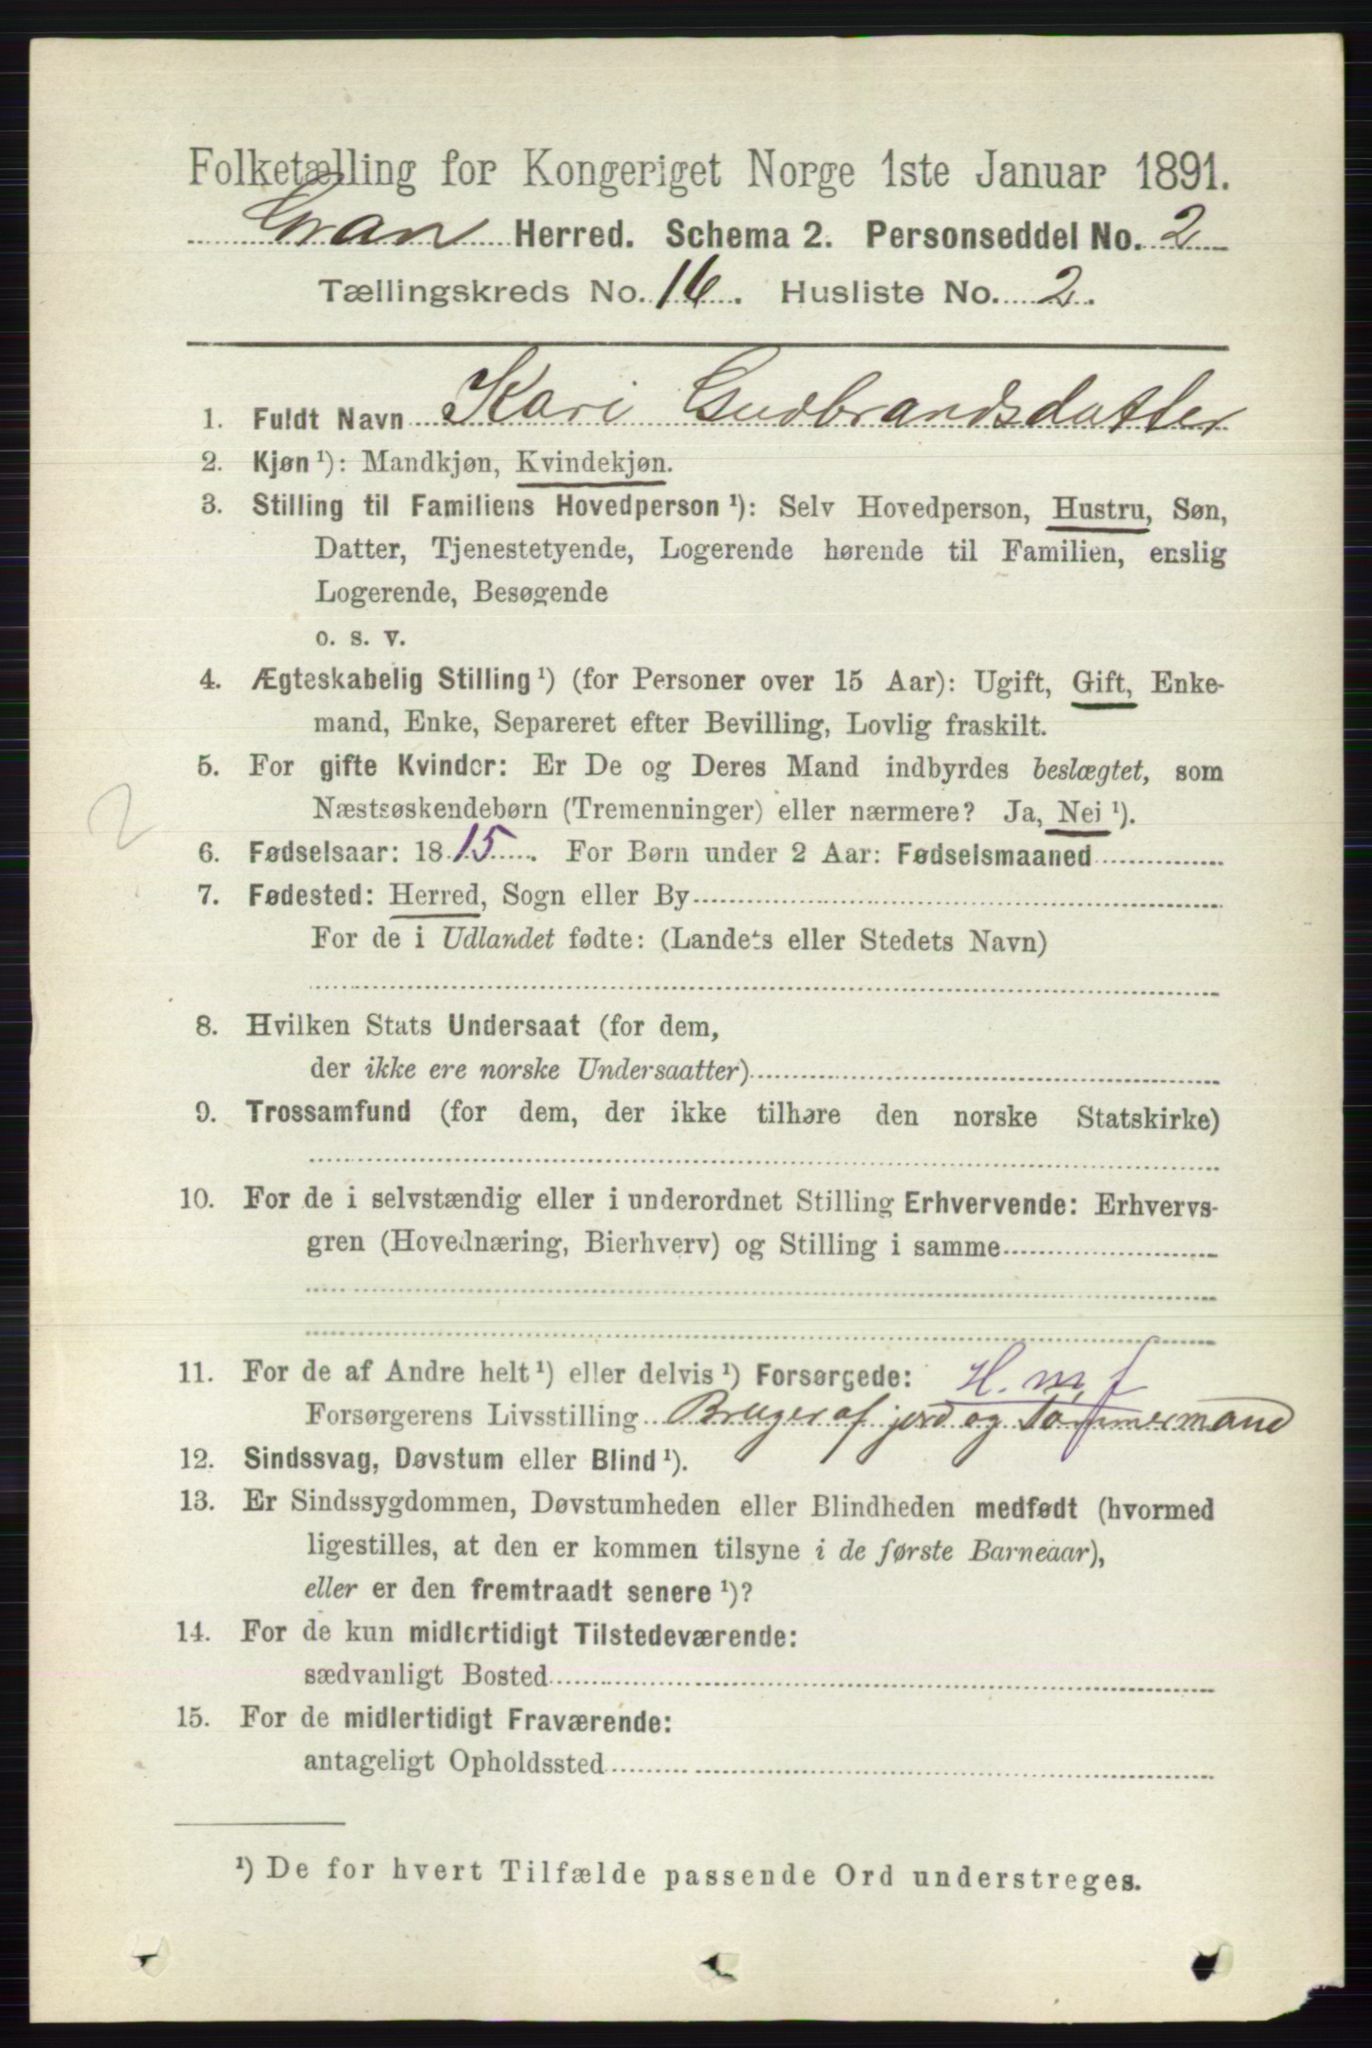 Folketælling for Kongeriget Norge 1ste Januar 1891.
Gran Herred. Schema 2. Personseddel No. 2
Tællingskreds No. 16. Husliste No. 2.
1. Fuldt Navn Kari Gudbrandsdatter
2. Kjøn ¹): Mandkjøn, Kvindekjøn.
3. Stilling til Familiens Hovedperson ¹): Selv Hovedperson, Hustru, Søn,
Datter, Tjenestetyende, Logerende hørende til Familien, enslig
Logerende, Besøgende
o. s. v.
4. Ægteskabelig Stilling ¹) (for Personer over 15 Aar): Ugift, Gift, Enke-
mand, Enke, Separeret efter Bevilling, Lovlig fraskilt.
5. For gifte Kvinder: Er De og Deres Mand indbyrdes beslægtet, som
Næstsøskendebørn (Tremenninger) eller nærmere? Ja, Nei ¹).
2
6. Fødselsaar: 1815. For Børn under 2 Aar: Fødselsmaaned
7. Fødested: Herred, Sogn eller By
For de i Udlandet fødte: (Landets eller Stedets Navn)
8. Hvilken Stats Undersaat (for dem,
der ikke ere norske Undersaatter)
9. Trossamfund (for dem, der ikke tilhøre den norske Statskirke)
10. For de i selvstændig eller i underordnet Stilling Erhvervende: Erhvervs-
gren (Hovednæring, Bierhverv) og Stilling i samme
11. For de af Andre helt ¹) eller delvis ¹) Forsørgede: H. m. f
Forsørgerens Livsstilling Bruger af jord og Tømmermand
12. Sindssvag, Døvstum eller Blind ¹).
13. Er Sindssygdommen, Døvstumheden eller Blindheden medfødt (hvormed
ligestilles, at den er kommen tilsyne i de første Barneaar),
eller er den fremtraadt senere ¹)?
14. For de kun midlertidigt Tilstedeværende:
sædvanligt Bosted
15. For de midlertidigt Fraværende:
antageligt Opholdssted
¹) De for hvert Tilfælde passende Ord understreges.